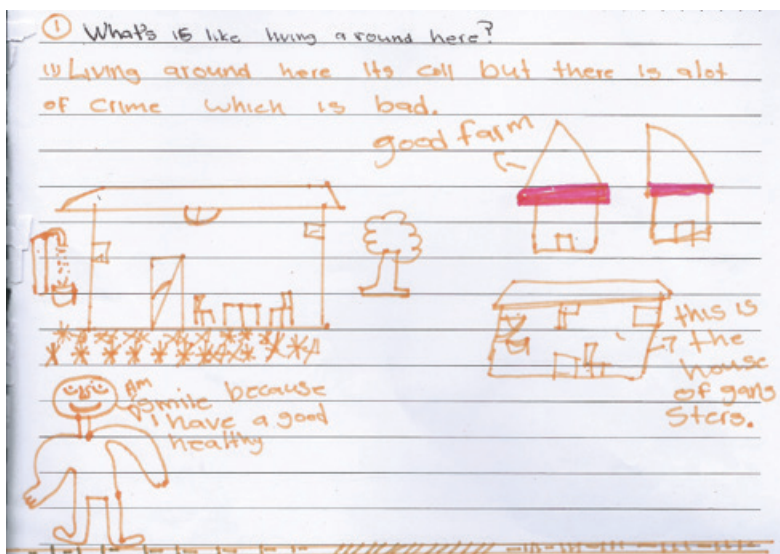 ① What's it like living a round here?
(1) Living around here its coll but there is alot
of crime which is bad.
good farm
this is
the
house
of gang
sters.
Am
smile because
I have a good
healthy